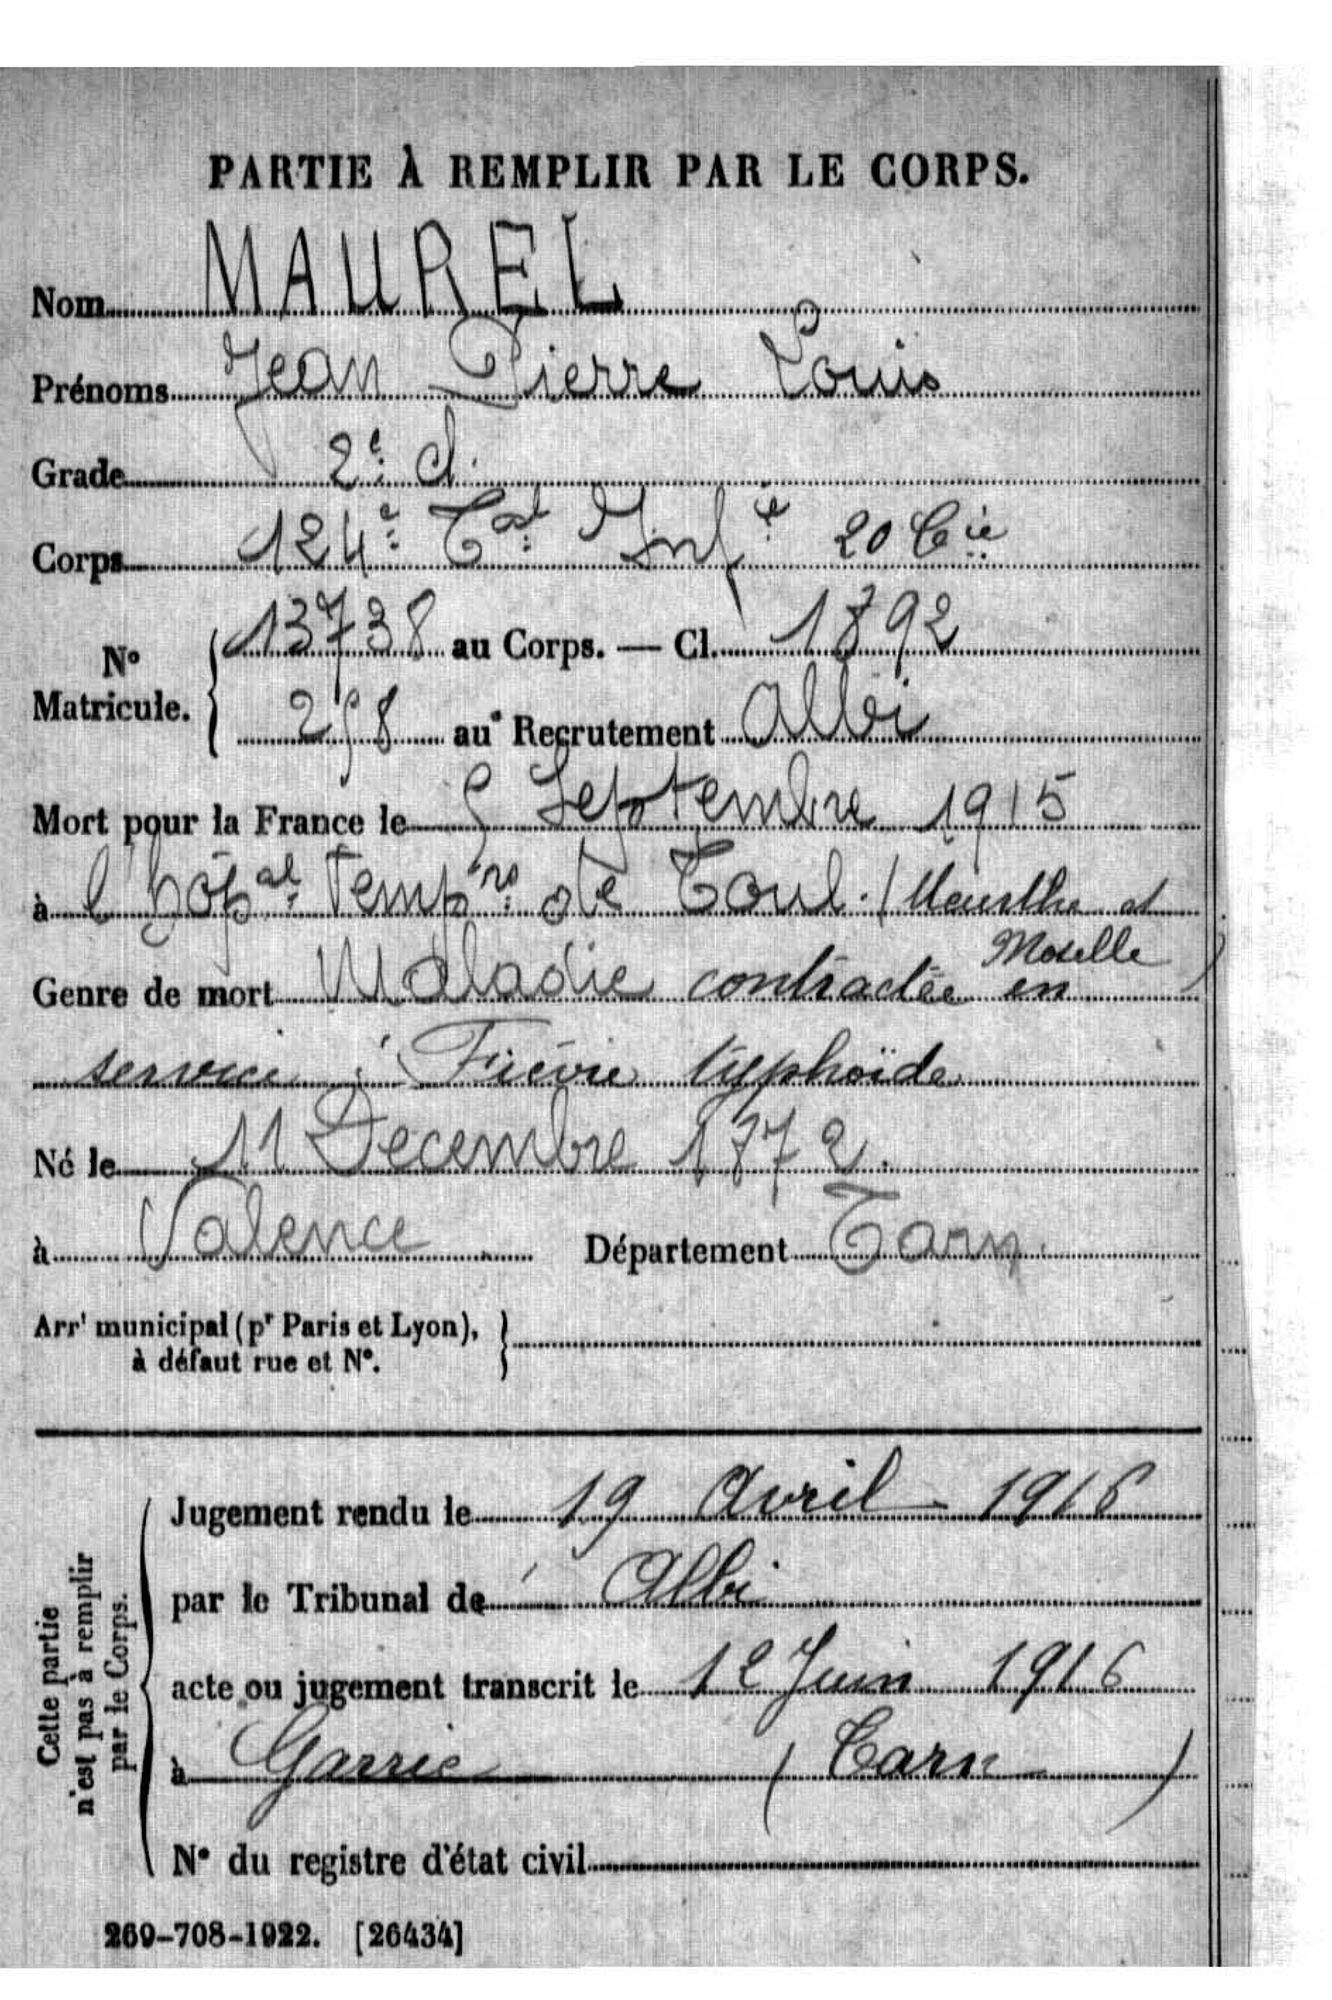 PARTIE À REMPLIR PAR LE CORPS.
Nom MAUREL
Prénoms Jean Pierre Louis
Grade 2e cl.
Corps 124e Tal Infie 20 Cie
No Matricule. { 13738 au Corps. — Cl. 1892
258 au Recrutement Albi
Mort pour la France le 5 Septembre 1915
à l'hôpal Tempre de Toul (Meurthe et
Moselle)
Genre de mort Maladie contractée en
service : Fièvre typhoïde
Né le 11 Décembre 1872.
à Valence Département Tarn
Arrt municipal (pr Paris et Lyon),
à défaut rue et No. }
Cette partie
n'est pas à remplir
par le Corps.
Jugement rendu le 19 Avril 1916
par le Tribunal de Albi
acte ou jugement transcrit le 12 Juin 1916
à Garric (Tarn)
No du registre d'état civil
269-708-1922. [26434]